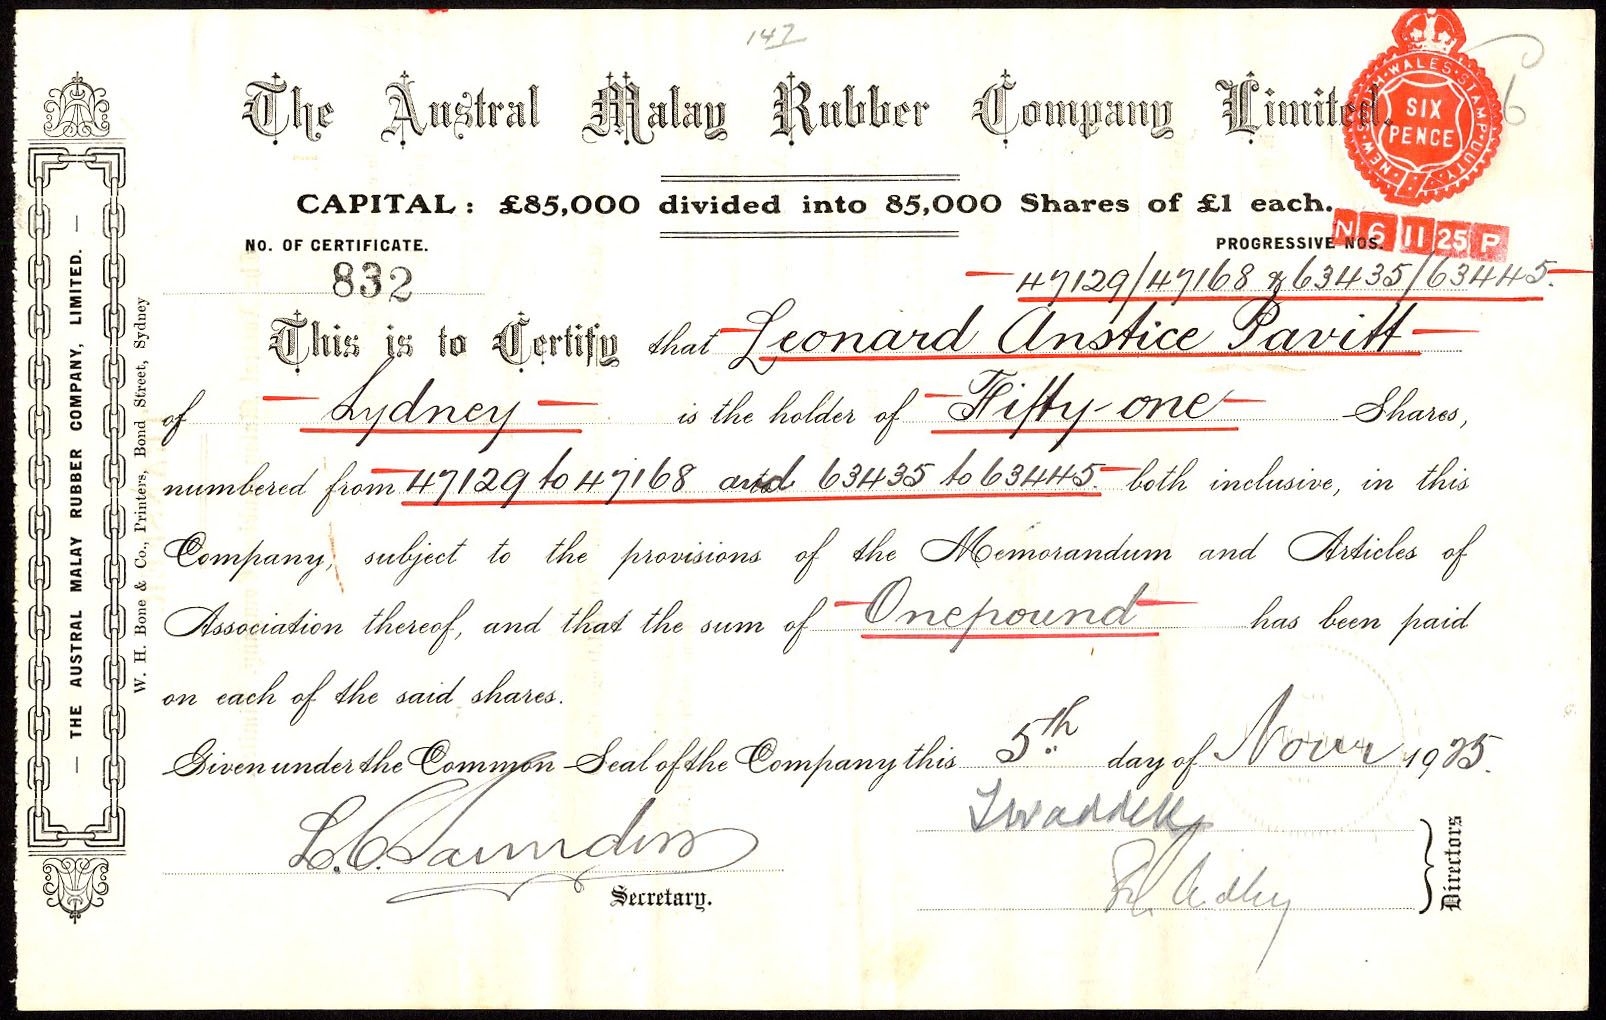 147
The Austral Malay Rubber Company Limited.
NEW S. WALES. STAMP. DUTY.
SIX
PENCE
CAPITAL: £85,000 divided into 85,000 Shares of £1 each.
N 6 11 25 P
NO. OF CERTIFICATE.
PROGRESSIVE NOS.
832
47129/47168 & 63435/63445.
This is to Certify that Leonard Anstice Pavitt
of Sydney is the holder of Fifty-one Shares,
numbered from 47129 to 47168 and 63435 to 63445. both inclusive, in this
Company, subject to the provisions of the Memorandum and Articles of
Association thereof, and that the sum of One pound has been paid
on each of the said shares.
Given under the Common Seal of the Company this 5th day of Novr 1925.
L. C. Saunders
Secretary.
Directors
— THE AUSTRAL MALAY RUBBER COMPANY, LIMITED. —
W. H. Bone & Co., Printers, Bond Street, Sydney